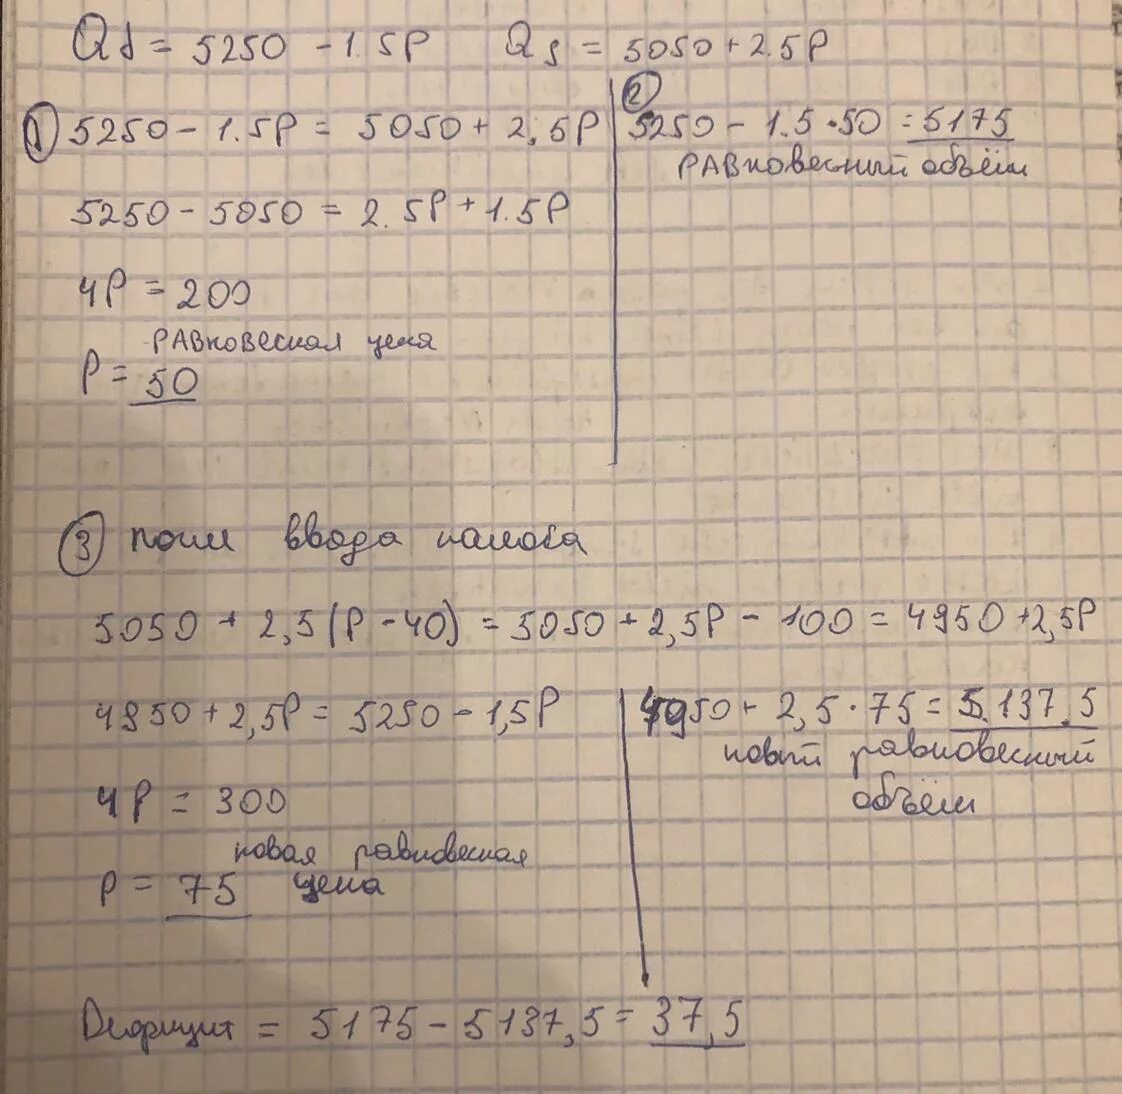 Qd = 5250 - 1.5P    Qs = 5050 + 2.5P
① 5250 - 1.5P = 5050 + 2,5P
5250 - 5050 = 2.5P + 1.5P
4P = 200
РАВновесная цена
P = 50
②
5250 - 1.5 • 50 = 5175
РАВновесный объём
③ после ввода налога
5050 + 2,5(P - 40) = 5050 + 2,5P - 100 = 4950 + 2,5P
4950 + 2,5P = 5250 - 1,5P
4P = 300
новая равновесная
P = 75 цена
4950 + 2,5 • 75 = 5.137.5
новый равновесный
объём
Дефицит = 5175 - 5137,5 = 37,5